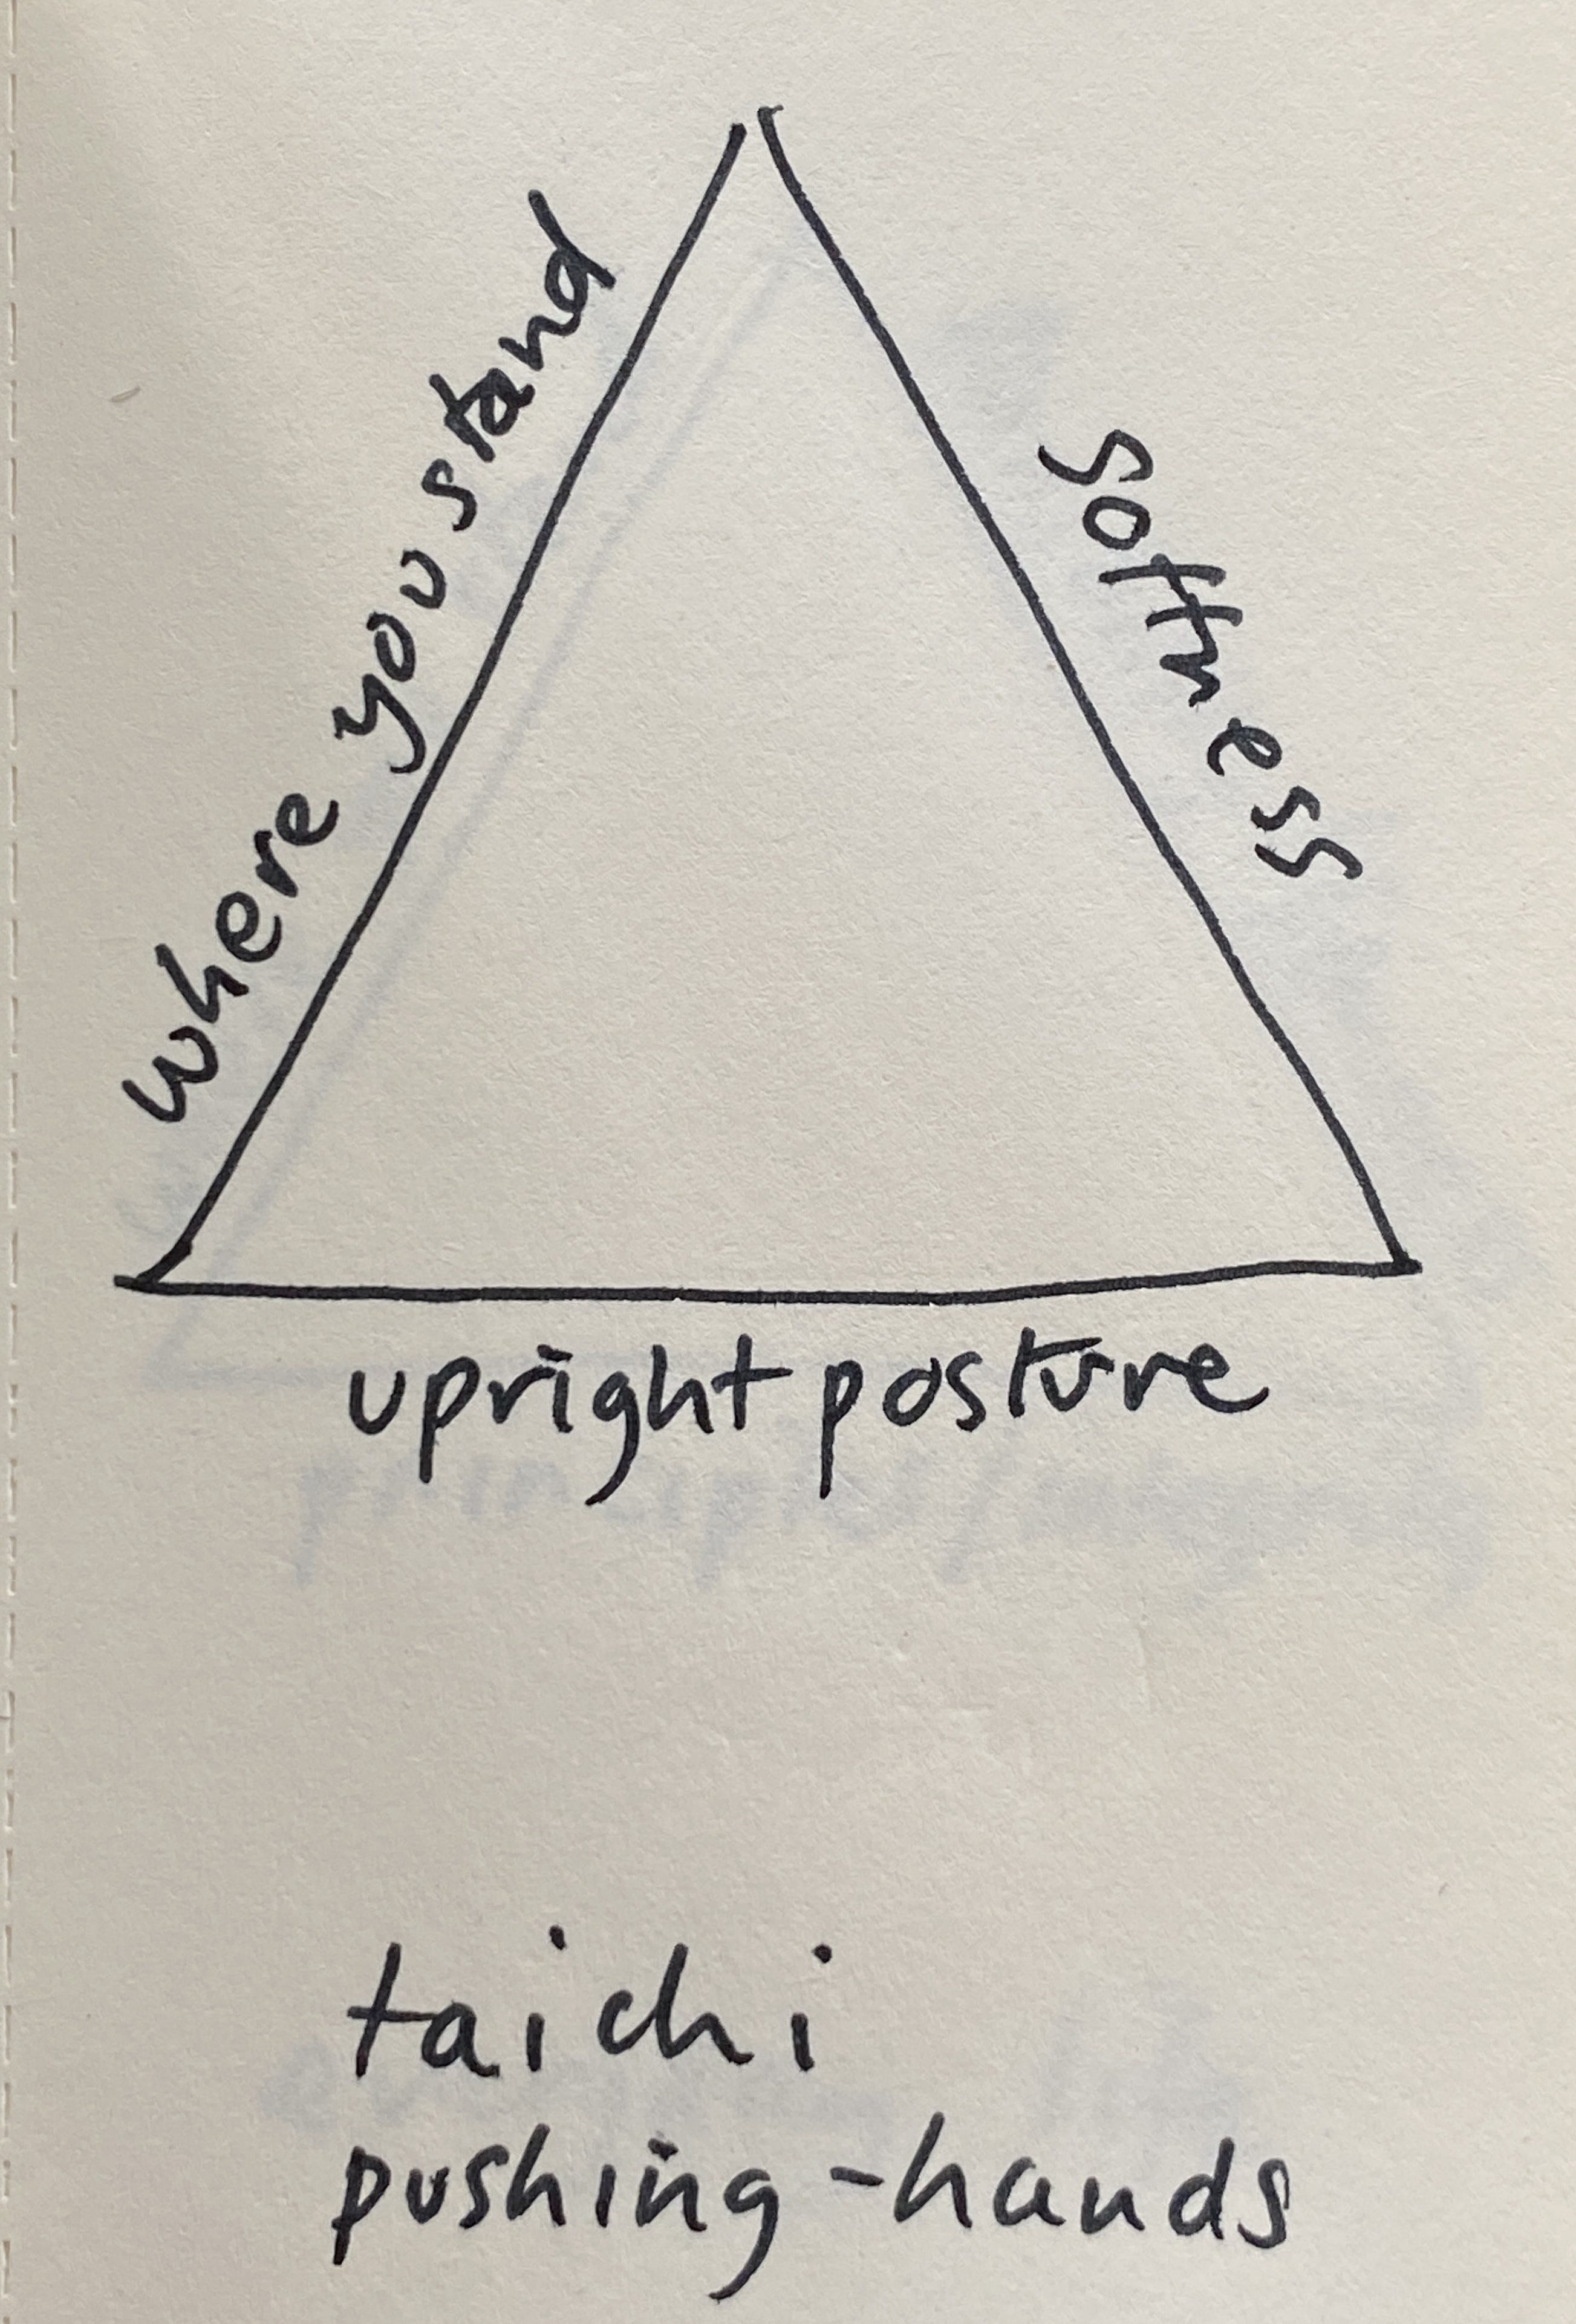 where you stand
softness
upright posture
taichi
pushing-hands